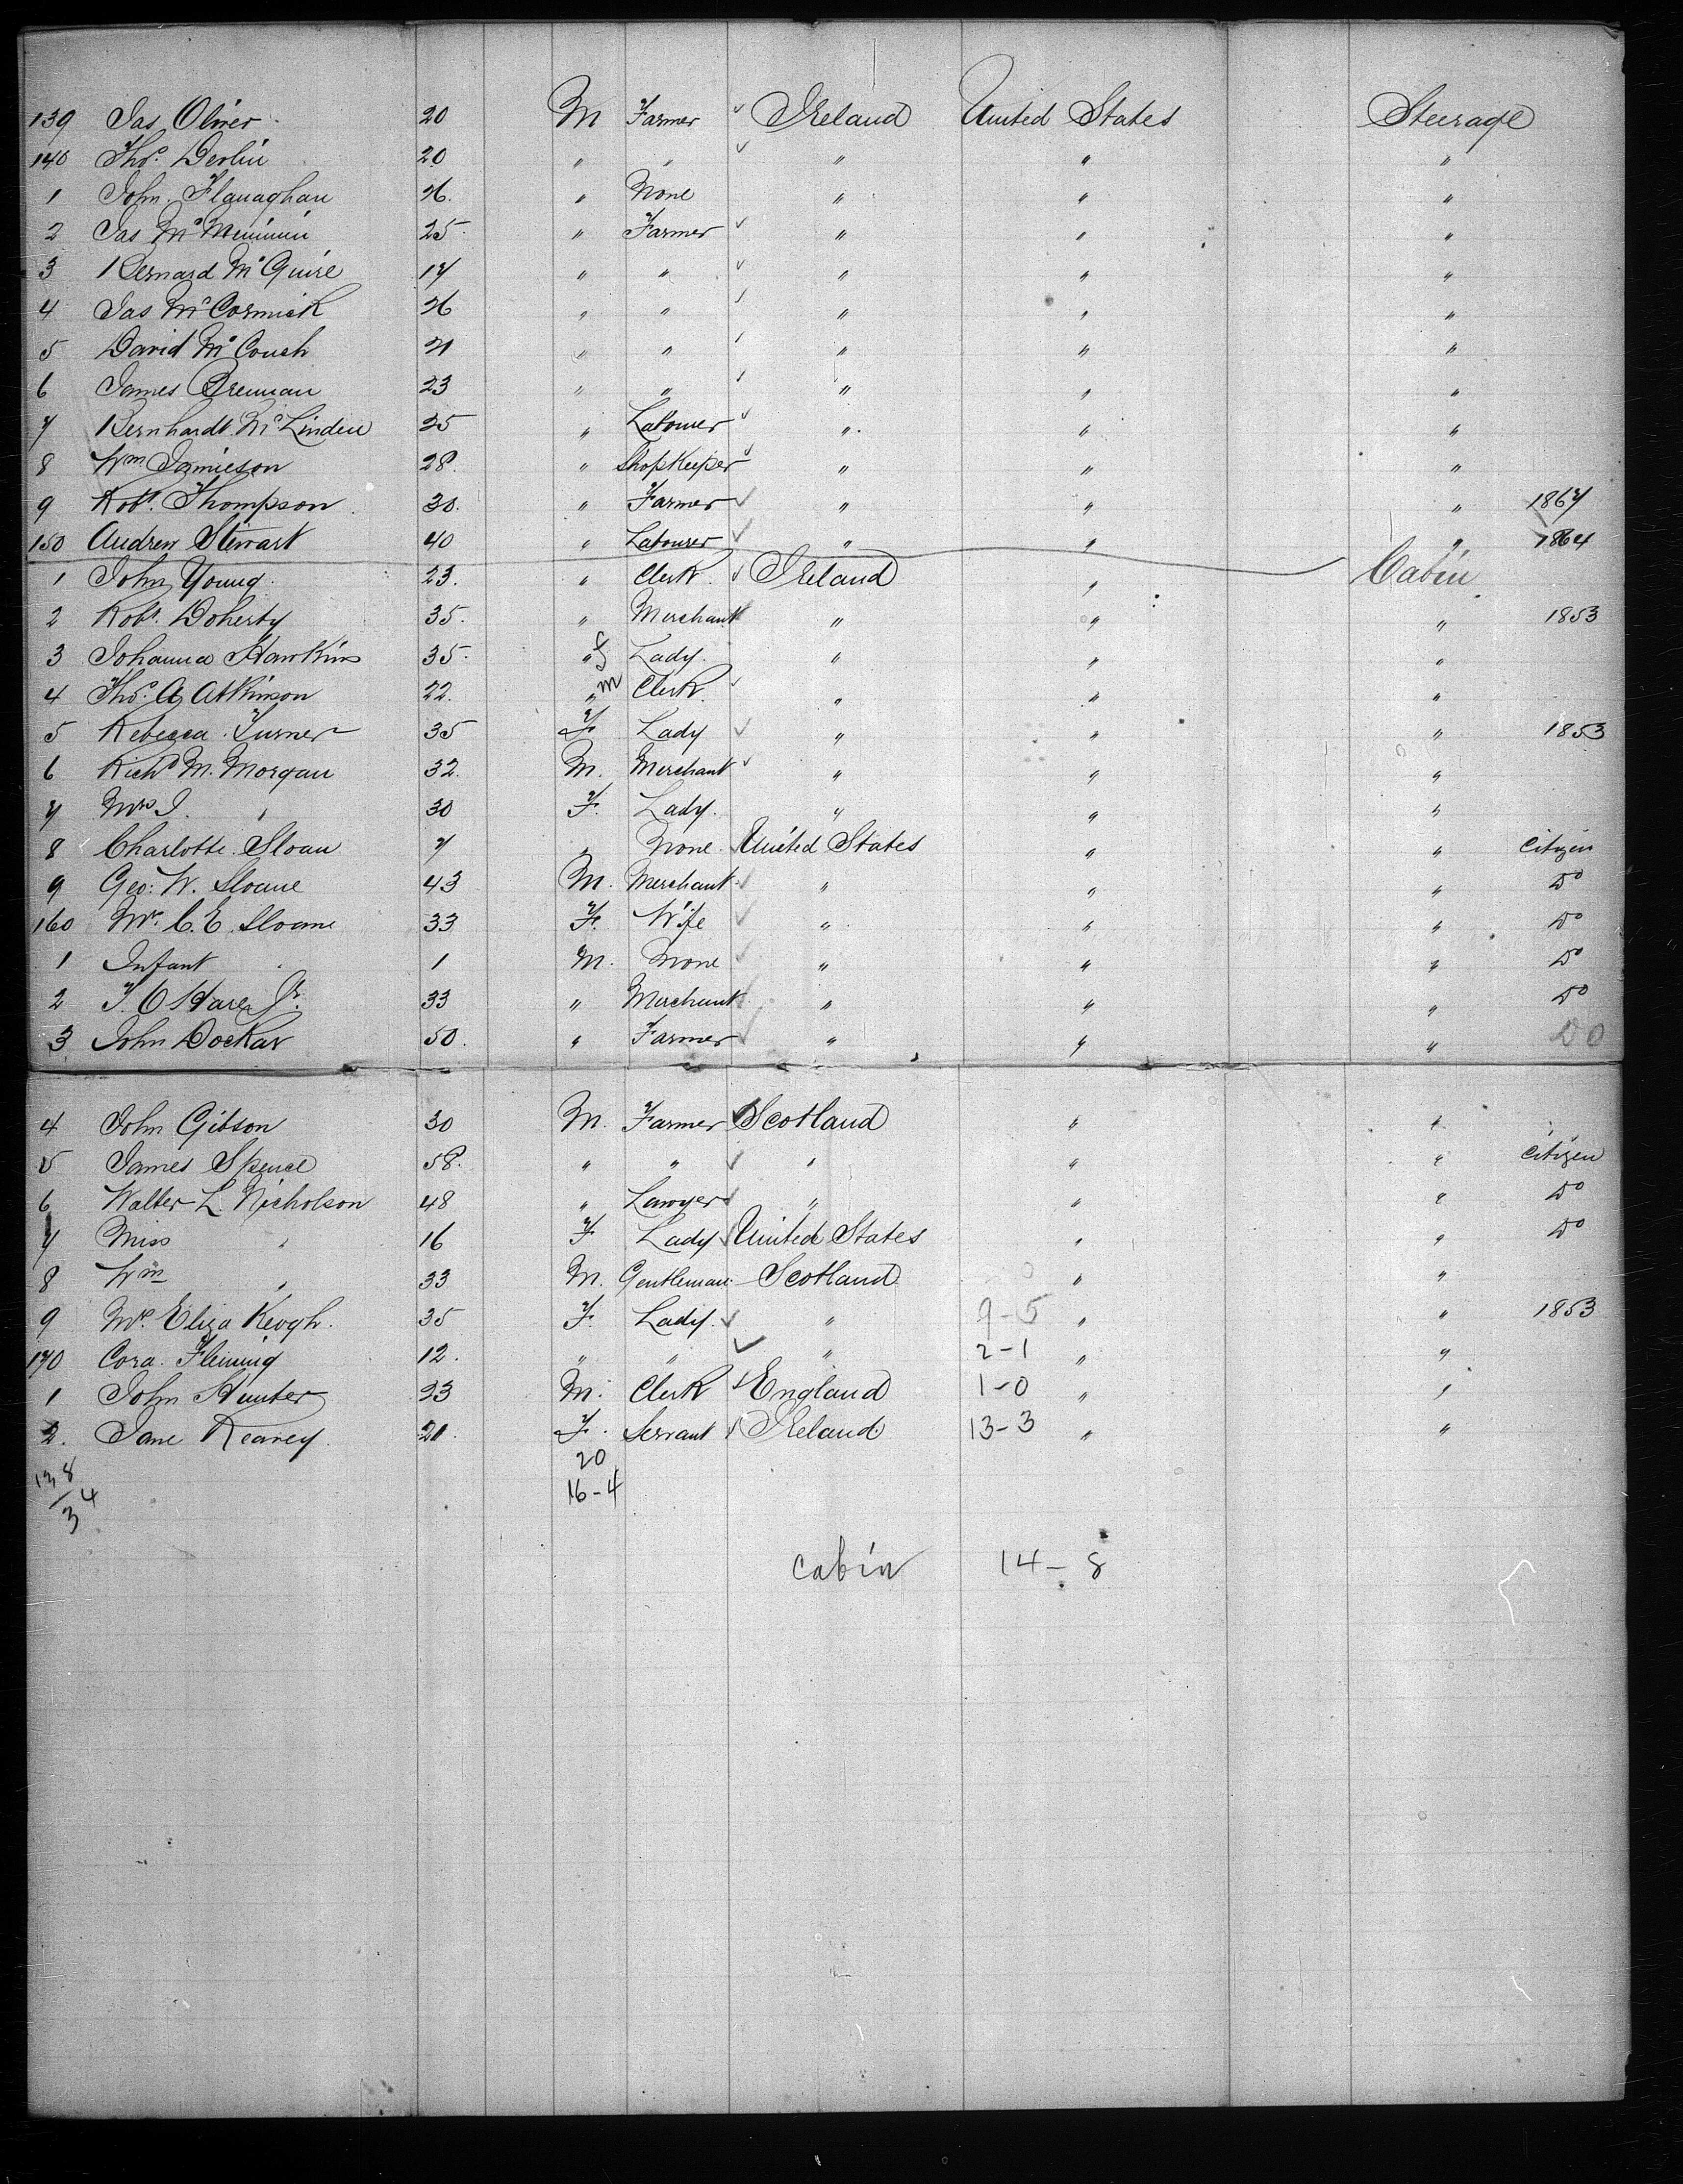 139 Jas Oliver 20 M Farmer Ireland United States Steerage
140 Thos. Devlin 20 " " " " "
1 John Flanaghan 26. " None " " "
2 Jas McMenimin 25. " Farmer " " "
3 Bernard McGuire 17 " " " " "
4 Jas McCormick 26 " " " " "
5 David McCouch 21 " " " " "
6 James Brennan 23 " " " " "
7 Bernhardt McLinden 25 " Labourer " " "
8 Wm Jamieson 28. " Shopkeeper " " "
9 Robt. Thompson 30. " Farmer " " " 1867
150 Andrew Stewart 40 " Labourer " " " 1864
1 John Young 23. " Clerk. Ireland " Cabin
2 Robt. Doherty 35. " Merchant " " " 1853
3 Johanna Hawkins 35. " f Lady. " " "
4 Thos. A Atkinson 22. " m Clerk. " " "
5 Rebecca Turner 35 F Lady " " " 1853
6 Richd M. Morgan 32. M. Merchant " " "
7 Mrs J. " 30 F. Lady. " " "
8 Charlotte Sloan 7 " None. United States " " Citizen
9 Geo: W. Sloane 43 M. Merchant " " " Do
160 Mrs. C. E. Sloane 33 F. Wife " " " Do
1 Infant 1 M. None " " " Do
2 T. O Hare Jr. 33 " Merchant " " " Do
3 John Dockar 50. " Farmer " " " Do
4 John Gibson 30 M. Farmer Scotland " "
5 James Spence 58. " " " " " Citizen
6 Walter L. Nicholson 48 " Lawyer " " " Do
7 Miss " 16 F Lady United States " " Do
8 Wm " 33 M. Gentleman Scotland " "
9 Mrs. Eliza Keogh. 35 F. Lady. " 9-5 " " 1853
170 Cora Fleming 12. " " " 2-1 " "
1 John Hunter 23 M. Clerk England 1-0 " "
2. Jane Kearey. 21. F. Servant Ireland. 13-3 " "
138 20
34 16-4
Cabin 14-8